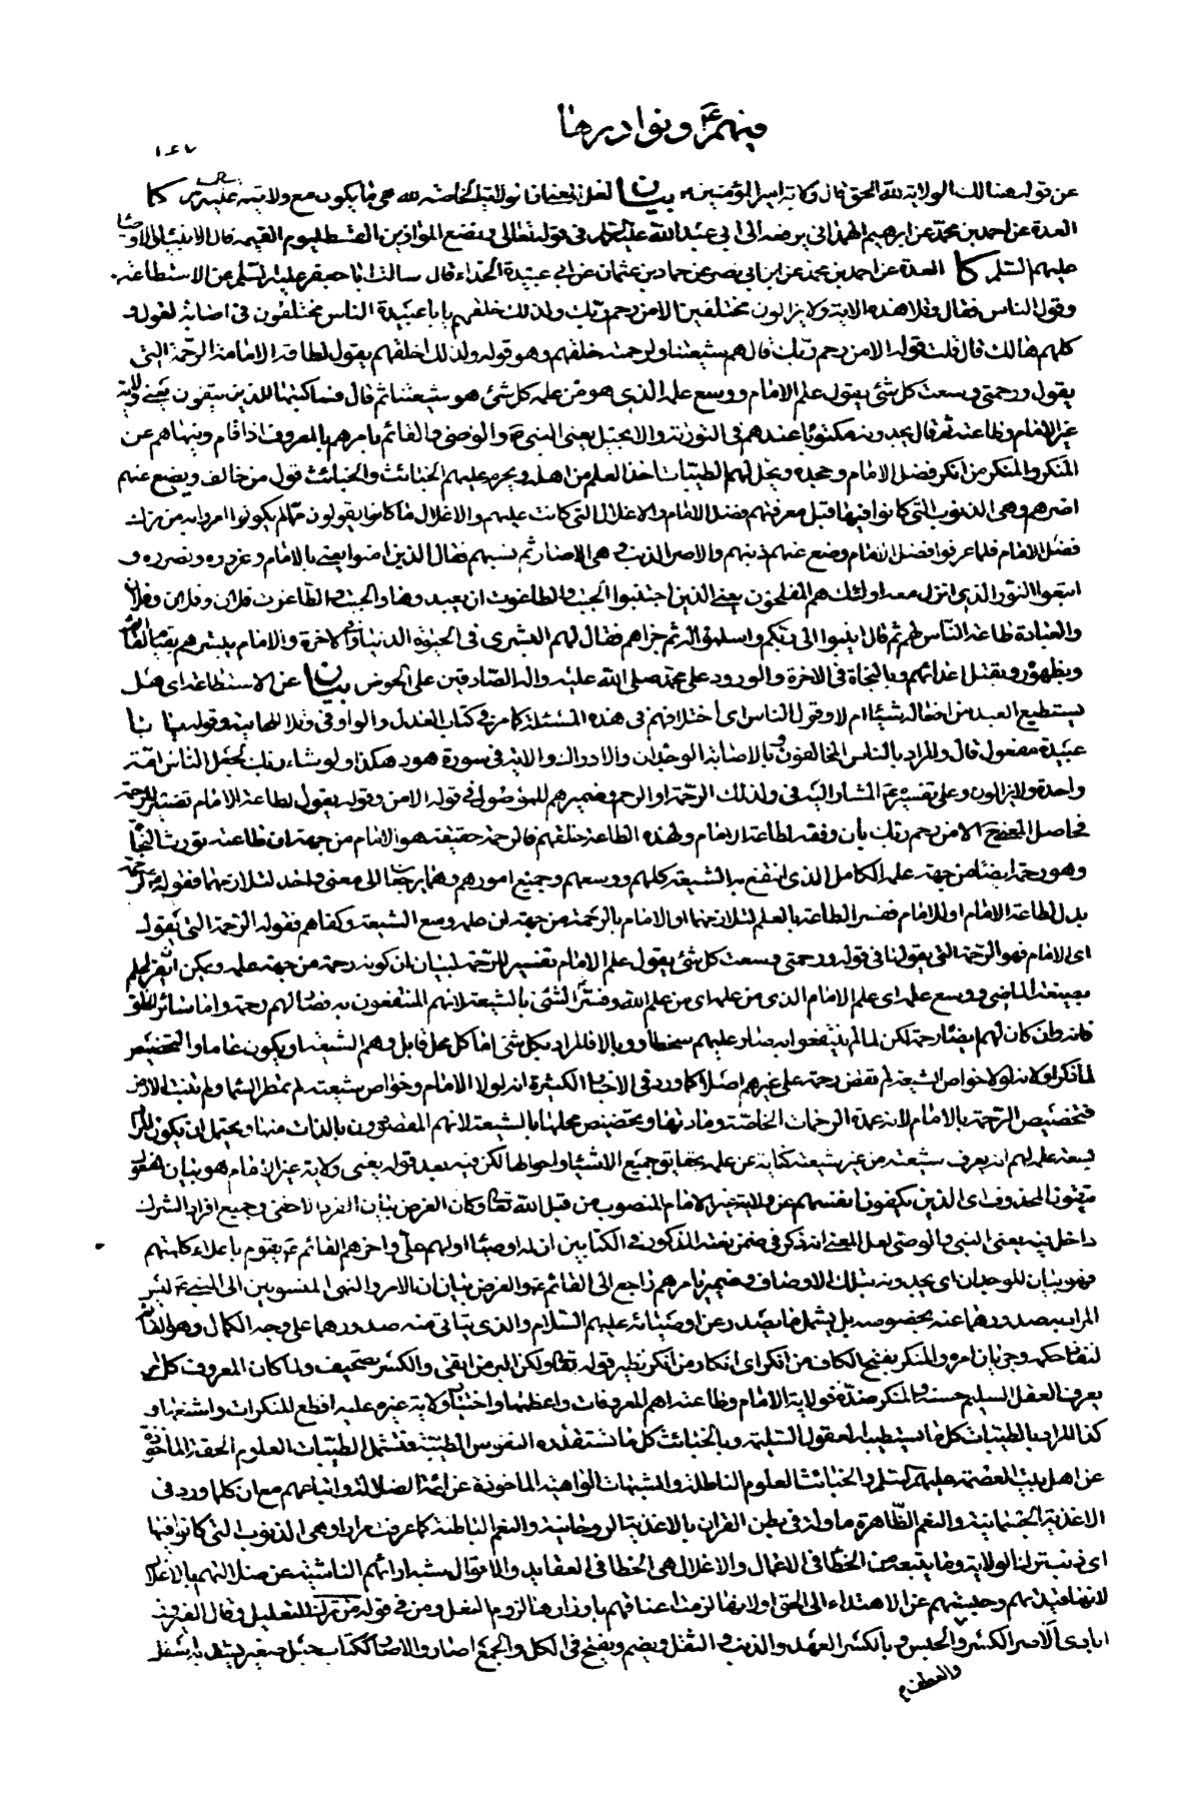 فيهم ع ونوادرها
١٤٧
عن قوله هنالك الولاية لله الحق قال ولاية امير المؤمنين ع بيان لعل المعنى ان الولاية الخاصة لله هي ما يكون مع ولايته عليه السلم كا
العدة عن احمد بن محمد عن ابرهيم الهمداني يرفعه الى ابي عبد الله عليه السلم في قوله تعالى ونضع الموازين القسط ليوم القيمة قال الانبياء والاوصيا
عليهم السلم كا العدة عن احمد بن محمد عن ابن ابي نصر عن حماد بن عثمان عن ابي عبيدة الحذاء قال سالت ابا جعفر عليه السلم عن الاستطاعة
وقول الناس فقال وتلا هذه الاية ولا يزالون مختلفين الا من رحم ربك ولذلك خلقهم يا با عبيدة الناس مختلفون في اصابة القول و
كلهم هالك قال قلت قوله الا من رحم ربك قال هم شيعتنا ولرحمته خلقهم وهو قوله ولذلك خلقهم يقول لطاعة الامام الرحمة التي
يقول ورحمتي وسعت كل شئ يقول علم الامام ووسع علمه الذي هو من علمه كل شئ هو شيعتنا ثم قال فساكتبها للذين يتقون يعني ولاية
غير الامام وطاعته ثم قال يجدونه مكتوبا عندهم في التورية والانجيل يعني النبي ص والوصي والقائم يامرهم بالمعروف اذا قام وينهاهم عن
المنكر والمنكر من انكر فضل الامام وجحده ويحل لهم الطيبات اخذ العلم من اهله ويحرم عليهم الخبائث والخبائث قول من خالف ويضع عنهم
اصرهم وهي الذنوب التي كانوا فيها قبل معرفتهم فضل الامام والاغلال التي كانت عليهم والاغلال ما كانوا يقولون مما لم يكونوا امروا به من ترك
فضل الامام فلما عرفوا فضل الامام وضع عنهم اصرهم والاصر الذنب وهي الاصار ثم نسبهم فقال الذين امنوا يعني بالامام وعزروه ونصروه و
اتبعوا النور الذي انزل معه اولئك هم المفلحون يعني الذين اجتنبوا الجبت والطاغوت ان يعبدوها والجبت والطاغوت فلان وفلان وفلان
والعبادة طاعة الناس لهم ثم قال انيبوا الى ربكم واسلموا له ثم جزاهم فقال لهم البشرى في الحيوة الدنيا وفي الاخرة والامام يبشرهم بقيام القائم
وبظهوره وبقتل اعدائهم وبالنجاة في الاخرة والورود على محمد صلى الله عليه واله الصادقين على الحوض بيان عن الاستطاعة اي هل
يستطيع العبد من افعاله شيئا ام لا وقول الناس اي اختلافهم في هذه المسئلة كما مر في كتاب العدل والواو في وتلا الحالية وقوله يا با
عبيدة مفعول قال والمراد بالناس المخالفون وبالاصابة الوجدان والادراك والاية في سورة هود هكذا ولو شاء ربك لجعل الناس امة
واحدة ولا يزالون وعلى تفسيره ع المشار اليه في ولذلك الرحمة او الرحم وضميرهم للموصول في قوله الا من وقوله يقول لطاعة الامام تفسير للرحمة
فحاصل المعنى الا من رحم ربك بان وفقه لطاعة الامام ولهذه الطاعة خلقهم فالرحمة حقيقة هو الامام من جهة ان طاعته تورث النجاة
وهو رحمة ايضا من جهة علمه الكامل الذي انتفع به الشيعة كلهم ووسعهم وجميع امورهم وهما يرجعان الى معنى واحد لتلازمهما فقوله الرحمة
بدل لطاعة الامام او للامام ففسر الطاعة بالعلم لتلازمهما او الامام بالرحمة من جهة ان علمه وسع الشيعة وكفاهم فقوله الرحمة التي يقول
اي الامام فهو الرحمة التي يقولها في قوله ورحمتي وسعت كل شئ يقول علم الامام تفسير للرحمة لبيان ان كونه رحمة من جهة علمه ويمكن ان يقرء علم
بصيغة الماضي ووسع علمه اي علم الامام الذي من علمه اي من علم الله وفسر الشئ بالشيعة لانهم المنتفعون به فصار لهم رحمة واما سائر الخلق
فانه وان كان لهم ايضا رحمة لكن لما لم ينتفعوا به صار عليهم سخطا ووبالا فالمراد بكل شئ اما كل محل قابل وهم الشيعة او يكون عاما والتخصيص
لما ذكر او لانه لولا خواص الشيعة لم تفض رحمة على غيرهم اصلا كما ورد في الاخبار الكثيرة انه لولا الامام وخواص شيعته لم تمطر السماء ولم تنبت الارض
فتخصيص الرحمة بالامام لانه عمدة الرحمات الخاصة ومادتها وتخصيص محلها بالشيعة لانهم المقصودون بالذات منها ويحتمل ان يكون المراد
بسعة علمه لهم انه يعرف شيعته من غير شيعته كناية عن علمه بحقايق جميع الاشياء واحوالها لكن فيه بعد قوله يعني ولاية غير الامام هو بيان مفعول
يتقون المحذوف اي الذين يكفون انفسهم عن ولاية غير الامام المنصوب من قبل الله تعالى وكان الغرض بيان الفرد الاخفى وجميع افراد الشرك
داخل فيه يعني النبي والوصي لعل المعنى انه ذكر في ضمن نعته المذكور في الكتابين ان له اوصياء اولهم علي واخرهم القائم ع يقوم باعلاء كلمتهم
فهو بيان للوجدان اي يجدونه بتلك الاوصاف وضمير يامرهم راجع الى القائم ع والغرض بيان ان الامر والنهي المنسوبين الى النبي ص ليس
المراد به صدورهما عنه بخصوصه بل يشمل ما يصدر عن اوصيائه عليهم السلام والذي يتاتى منه صدورهما على وجه الكمال وهو القائم ع
لنفاذ حكمه وجريان امره والمنكر بفتح الكاف من انكر اي انكار من انكر نظير قوله تعالى ولكن البر من اتقى والكسر تصحيف ولما كان المعروف كل امر
يعرف العقل السليم حسنه والمنكر ضده فولاية الامام وطاعته اهم المعروفات واعظمها واختيار ولاية غيره عليه افظع المنكرات واشنعها و
كذا المراد بالطيبات كل ما يستطيبه العقول السليمة وبالخبائث كل ما تستقذره النفوس الطيبة فتشمل الطيبات العلوم الحقة الماخوذة
عن اهل بيت العصمة عليهم السلم والخبائث العلوم الباطلة والشبهات الواهية الماخوذة عن ائمة الضلالة واتباعهم مع ان كلما ورد في
الاغذية الجسمانية والنعم الظاهرة ماولة في بطن القران بالاغذية الروحانية والنعم الباطنة كما عرفت مرارا وهي الذنوب التي كانوا فيها
اي ذنب ترك الولاية وما يتبعه من الخطأ في الاعمال والاغلال هي الخطا في العقايد والاقوال شبه اراءهم الناشئة عن ضلالتهم بالاغلال
لانها قيدتهم وحبستهم عن الاهتداء الى الحق او لانها لزمت اعناقهم باوزارها لزوم الغل ومن في قوله من ترك للتعليل وقال الفيروز
ابادي الاصر الكسر والحبس وبالكسر العهد والذنب والثقل ويضم ويفتح في الكل والجمع اصار والاصار ككتاب حبل صغير يشد به اسفل
والعطف م